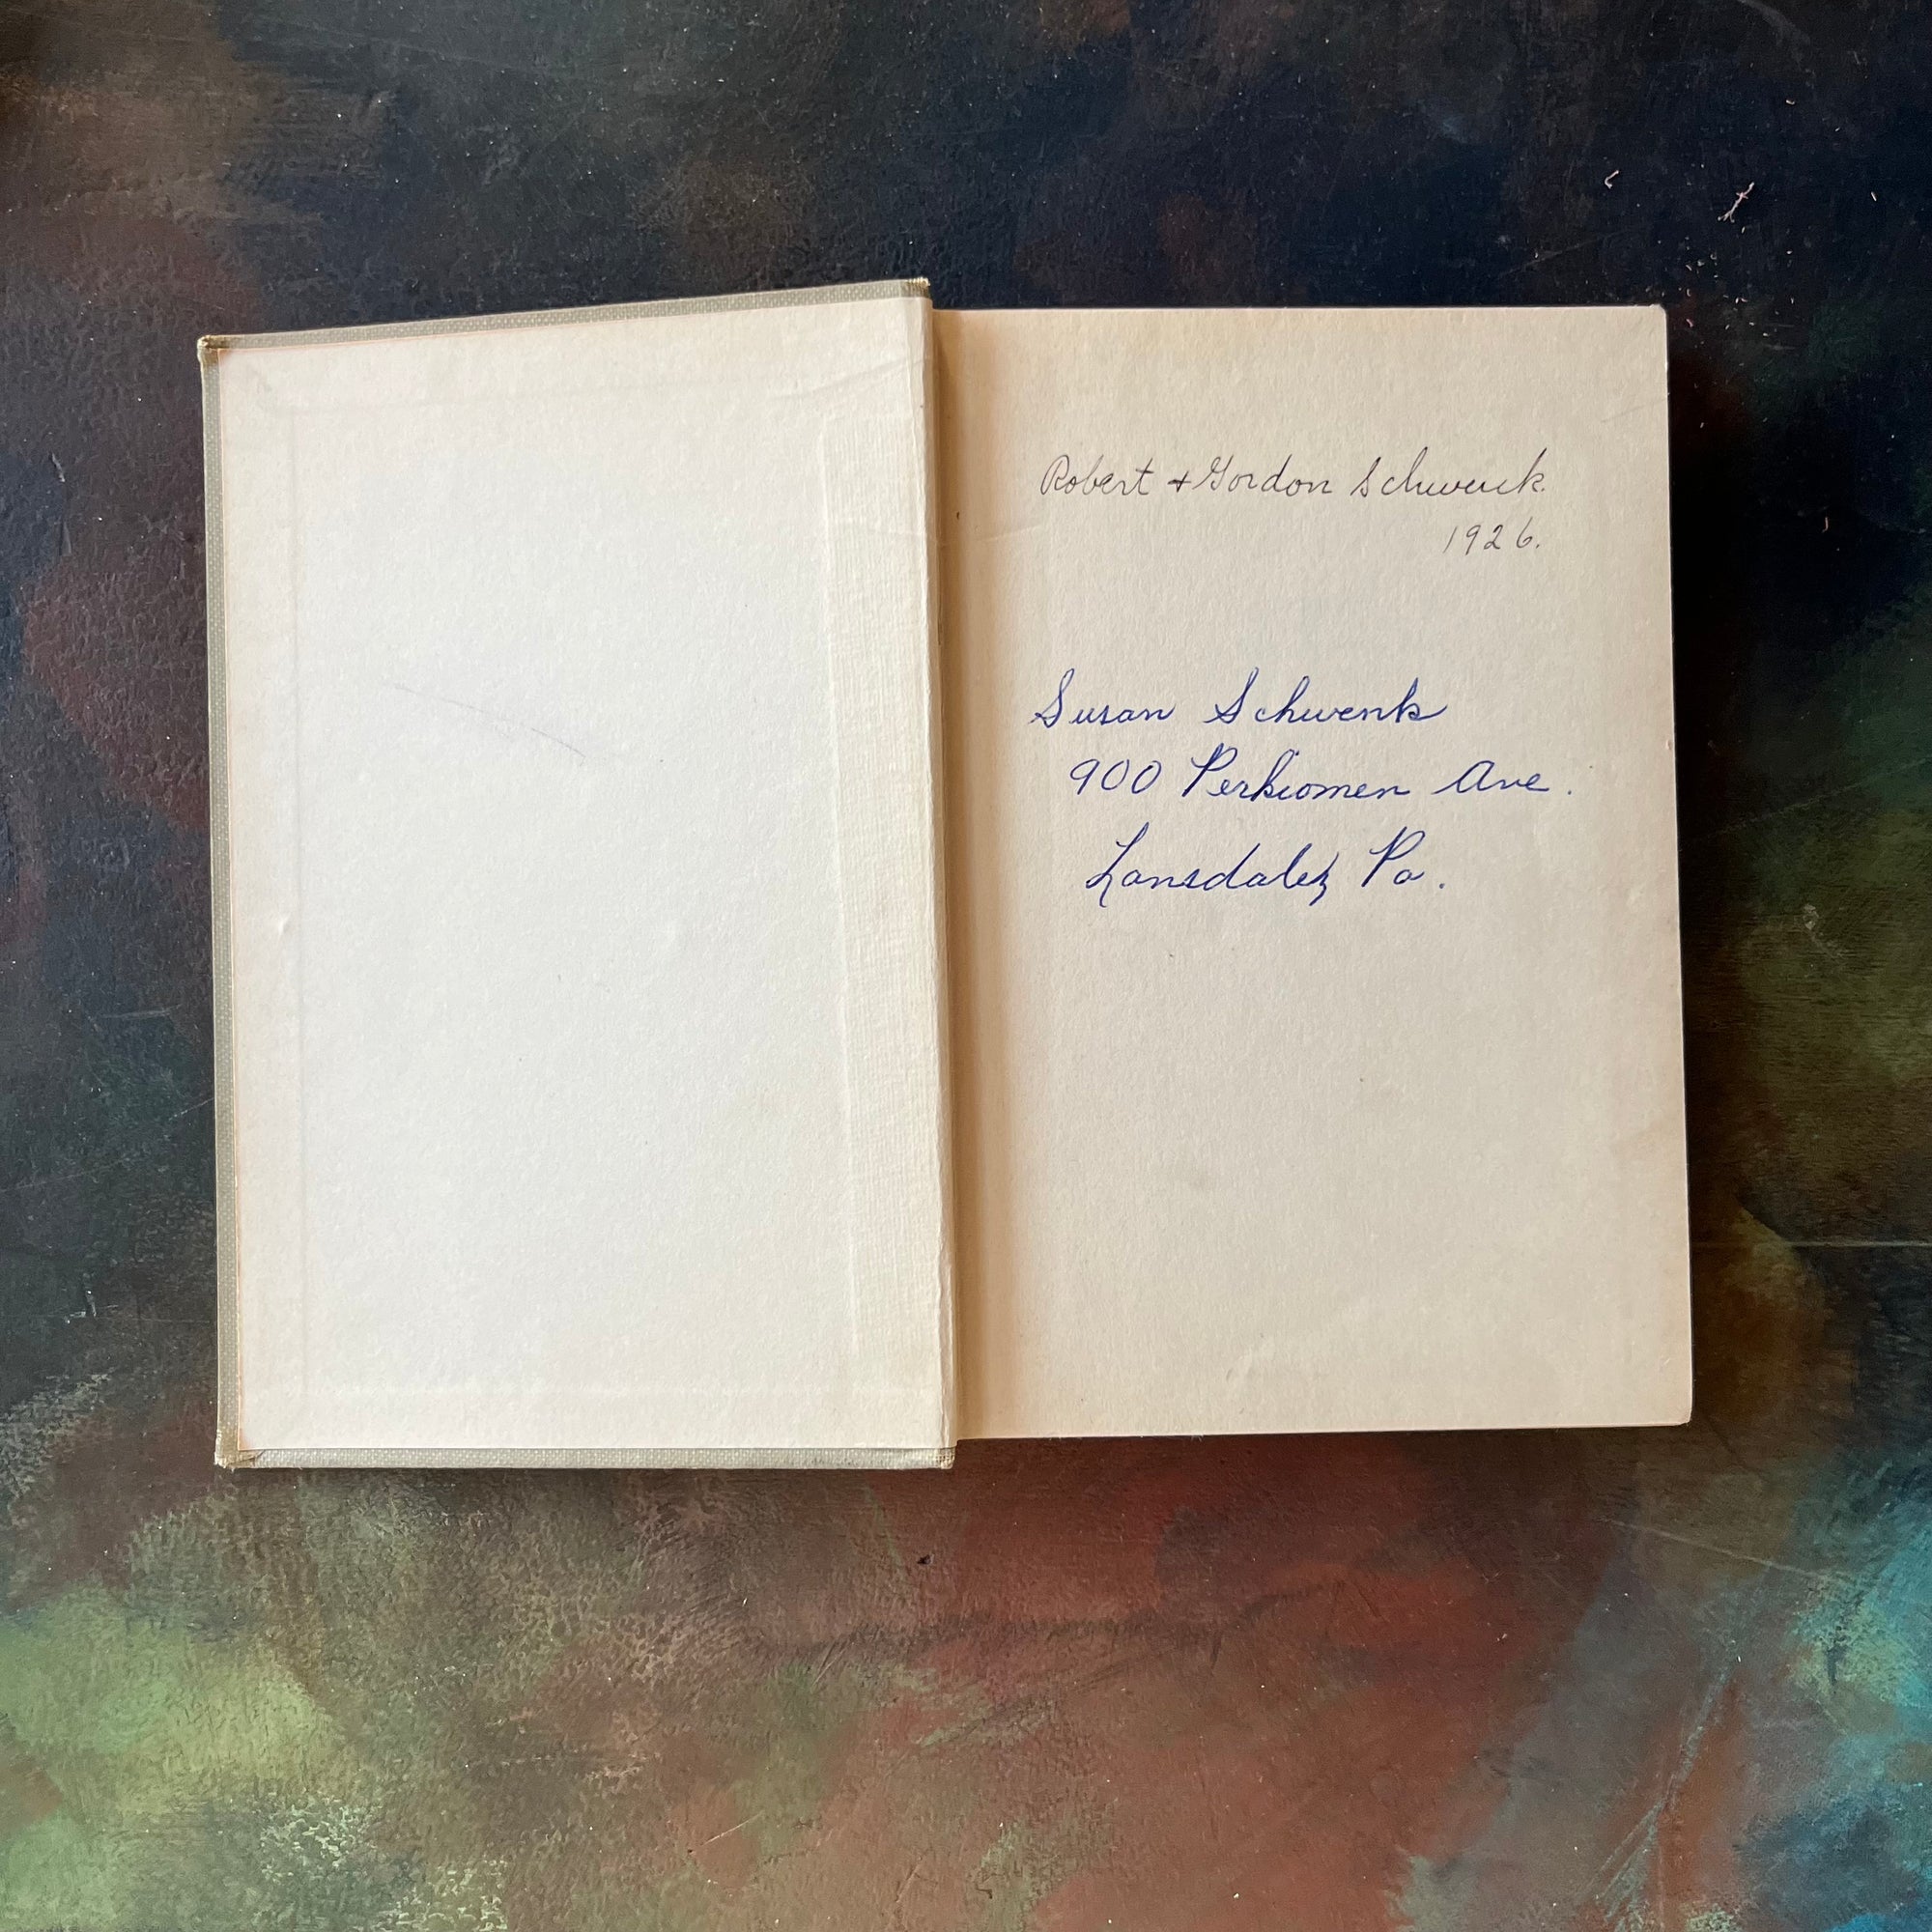 Robert + Gordon Schwenk.
1926.
Susan Schwenk
900 Perkiomen Ave.
Lansdale, Pa.